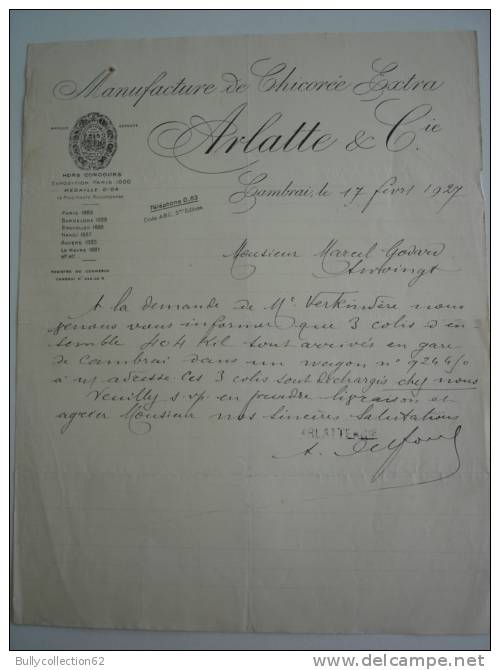 Manufacture de Chicorée Extra
Arlatte & Cie
MARQUE DEPOSEE
HORS CONCOURS
EXPOSITION PARIS 1900
MEDAILLE D'OR
LA PLUS HAUTE RECOMPENSE
PARIS 1889
BARCELONA 1888
BRUXELLES 1888
HANOÏ 1887
ANVERS 1885
LE HAVRE 1881
etc etc
REGISTRE DU COMMERCE
CAMBRAI N°
Téléphone 0.63
Code A.B.C. 5me Edition
Cambrai, le 17 févr 1927
Monsieur Marcel Godard
Awoingt
A la demande de Mr Verkindère nous
venons vous informer que 3 colis d'en
semble 404 Kil sont arrivés en gare
de Cambrai dans un wagon n° 92450
a n/ adresse. Ces 3 colis sont déchargés chez nous
Veuillez s.v.p. en prendre livraison et
agréer Monsieur nos sincères salutations
ARLATTE & CIE
Bullycollection62
delcampe.net